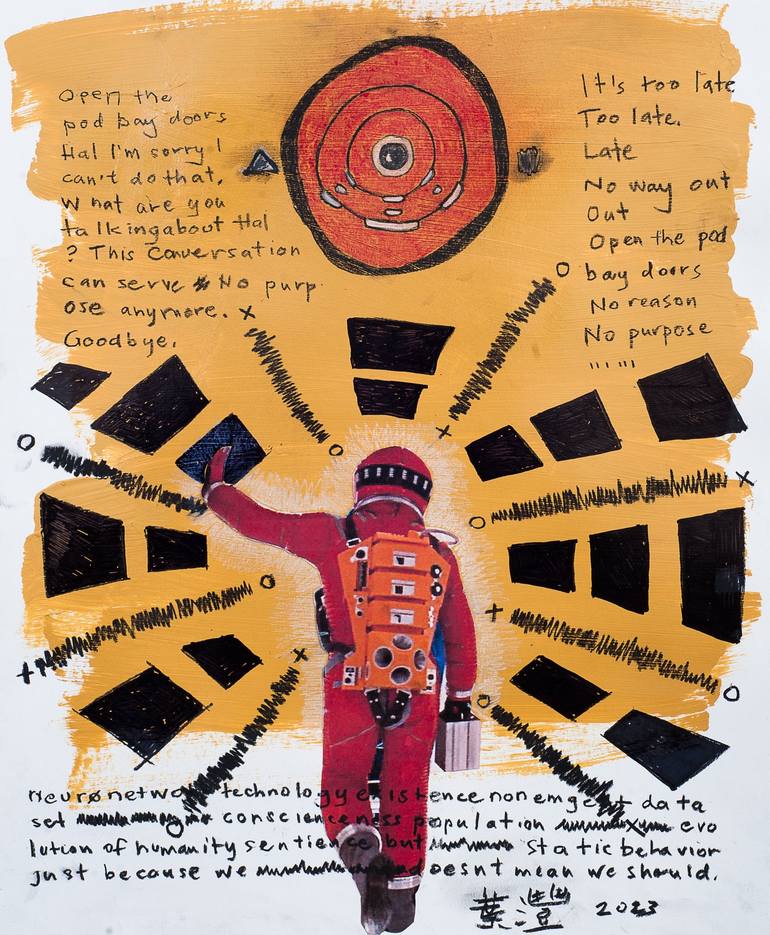 Open the
pod bay doors
Hal I'm sorry I
can't do that.
What are you
talkingabout Hal
? This Conversation
can serve No purp
ose anymore. x
Goodbye.
It's too late
Too late.
Late
No way out
Out
Open the pod
bay doors
No reason
No purpose
""" """
Neuronetwork technology existence nonemgent data
set conscienceness population evo
lution of humanity sentience but static behavior
just because we doesnt mean we should.
葉 2023